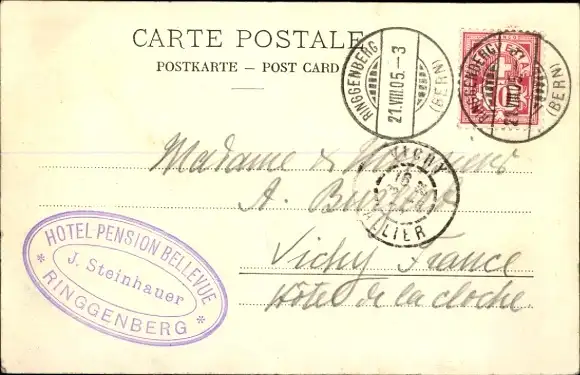 CARTE POSTALE
POSTKARTE — POST CARD
RINGGENBERG
(BERN)
21.VIII.05.–3
RINGGENBERG
(BERN)
Madame &
A.
VICHY
ALLIER
Vichy France
Hôtel de la cloche
HOTEL-PENSION BELLEVUE
J. Steinhauer
* RINGGENBERG *